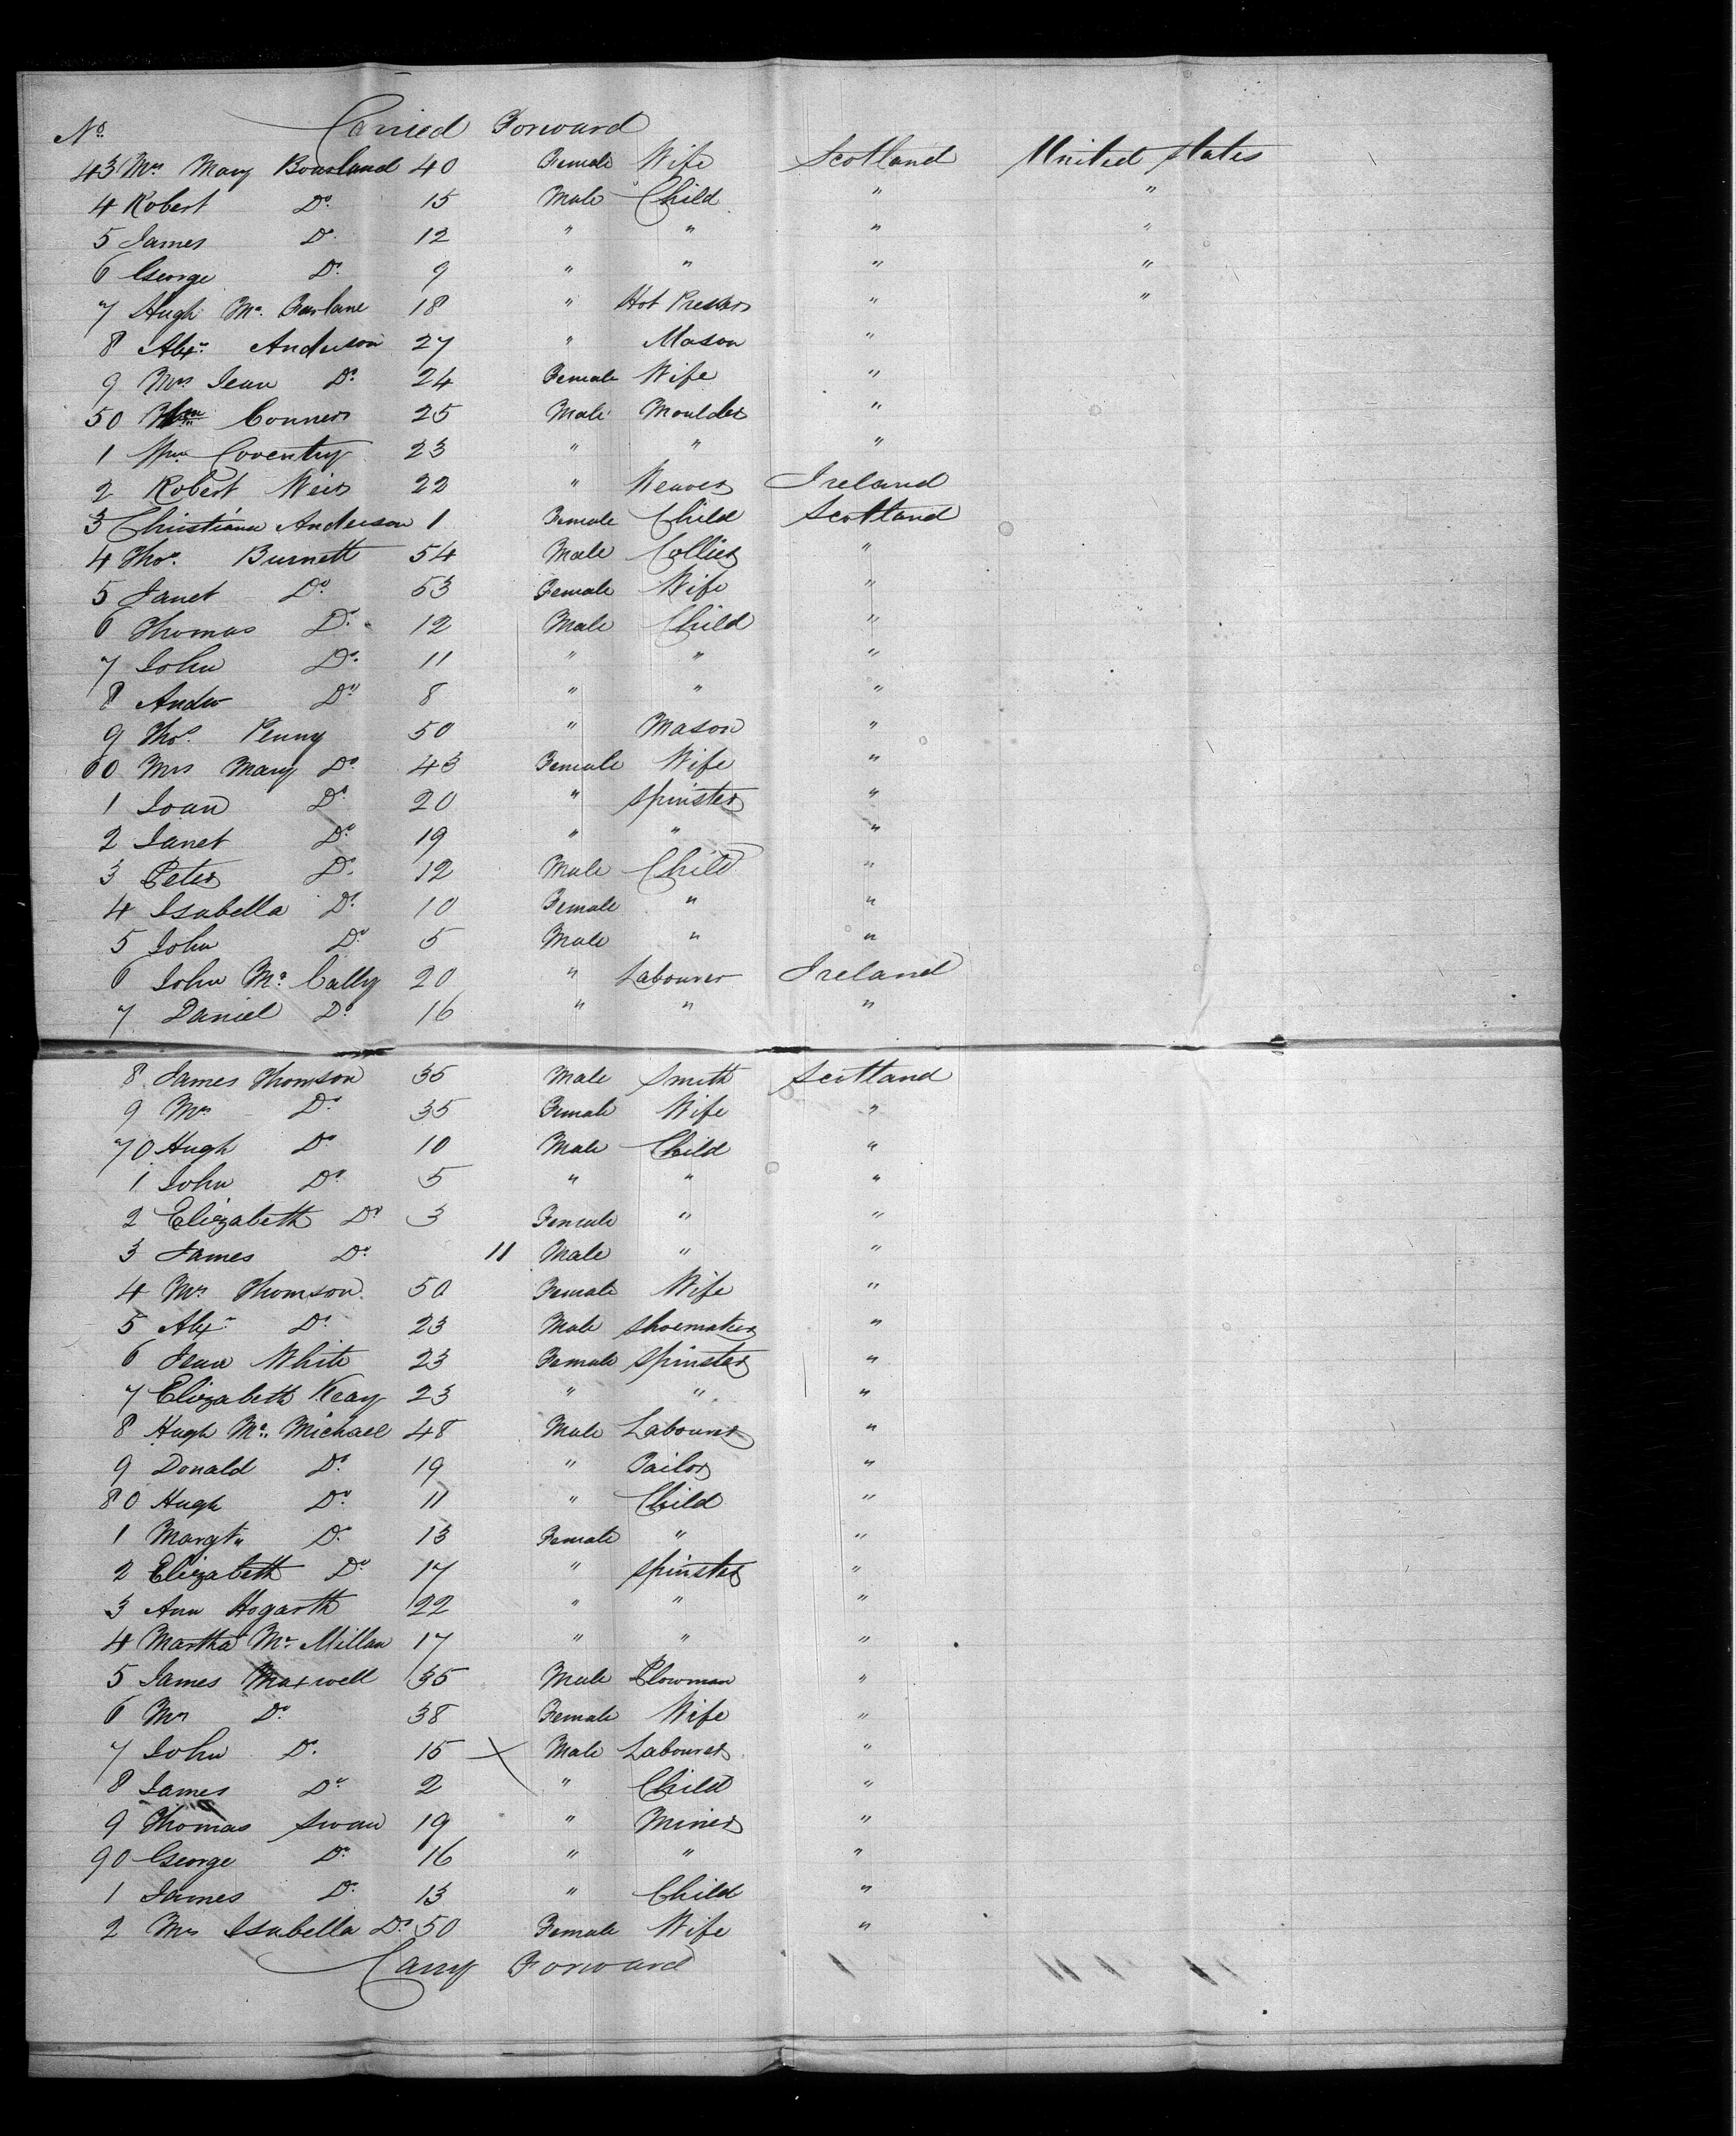 No. Carried Forward
43 Mrs Mary Bowland 40 Female Wife Scotland United States
4 Robert Do. 15 Male Child " "
5 James Do. 12 " " " "
6 George Do. 9 " " " "
7 Hugh Mc. Farlane 18 " Hot Presser " "
8 Alexr. Anderson 27 " Mason "
9 Mrs Jean Do. 24 Female Wife "
50 Wm Conner 25 Male Moulder "
1 Wm Coventry 23 " " "
2 Robert Weir 22 " Weaver Ireland
3 Christiana Anderson 1 Female Child Scotland
4 Thos. Burnett 54 Male Collier "
5 Janet Do. 53 Female Wife "
6 Thomas Do. 12 Male Child "
7 John Do. 11 " " "
8 Andw Do. 8 " " "
9 Thos. Penny 50 " Mason "
60 Mrs Mary Do. 43 Female Wife "
1 Joan Do. 20 " Spinster "
2 Janet Do. 19 " " "
3 Peter Do. 12 Male Child "
4 Isabella Do. 10 Female " "
5 John Do. 5 Male " "
6 John Mc. Cally 20 " Labourer Ireland
7 Daniel Do. 16 " " "
8 James Thomson 35 Male Smith Scotland
9 Mrs Do. 35 Female Wife "
70 Hugh Do. 10 Male Child "
1 John Do. 5 " " "
2 Elizabeth Do. 3 Female " "
3 James Do. 11 Male " "
4 Mrs Thomson 50 Female Wife "
5 Alexr. Do. 23 Male Shoemaker "
6 Jean White 23 Female Spinster "
7 Elizabeth Keay 23 " " "
8 Hugh Mc. Michael 48 Male Labourer "
9 Donald Do. 19 " Tailor "
80 Hugh Do. 11 " Child "
1 Margt. Do. 13 Female " "
2 Elizabeth Do. 17 " Spinster "
3 Ann Hogarth 22 " " "
4 Martha Mc. Millan 17 " " "
5 James Maxwell 35 Male Plowman "
6 Mrs Do. 38 Female Wife "
7 John Do. 15 X Male Labourer "
8 James Do. 2 " Child "
9 Thomas Swan 19 " Miner "
90 George Do. 16 " " "
1 James Do. 13 " Child "
2 Mrs Isabella Do. 50 Female Wife "
Carry Forward